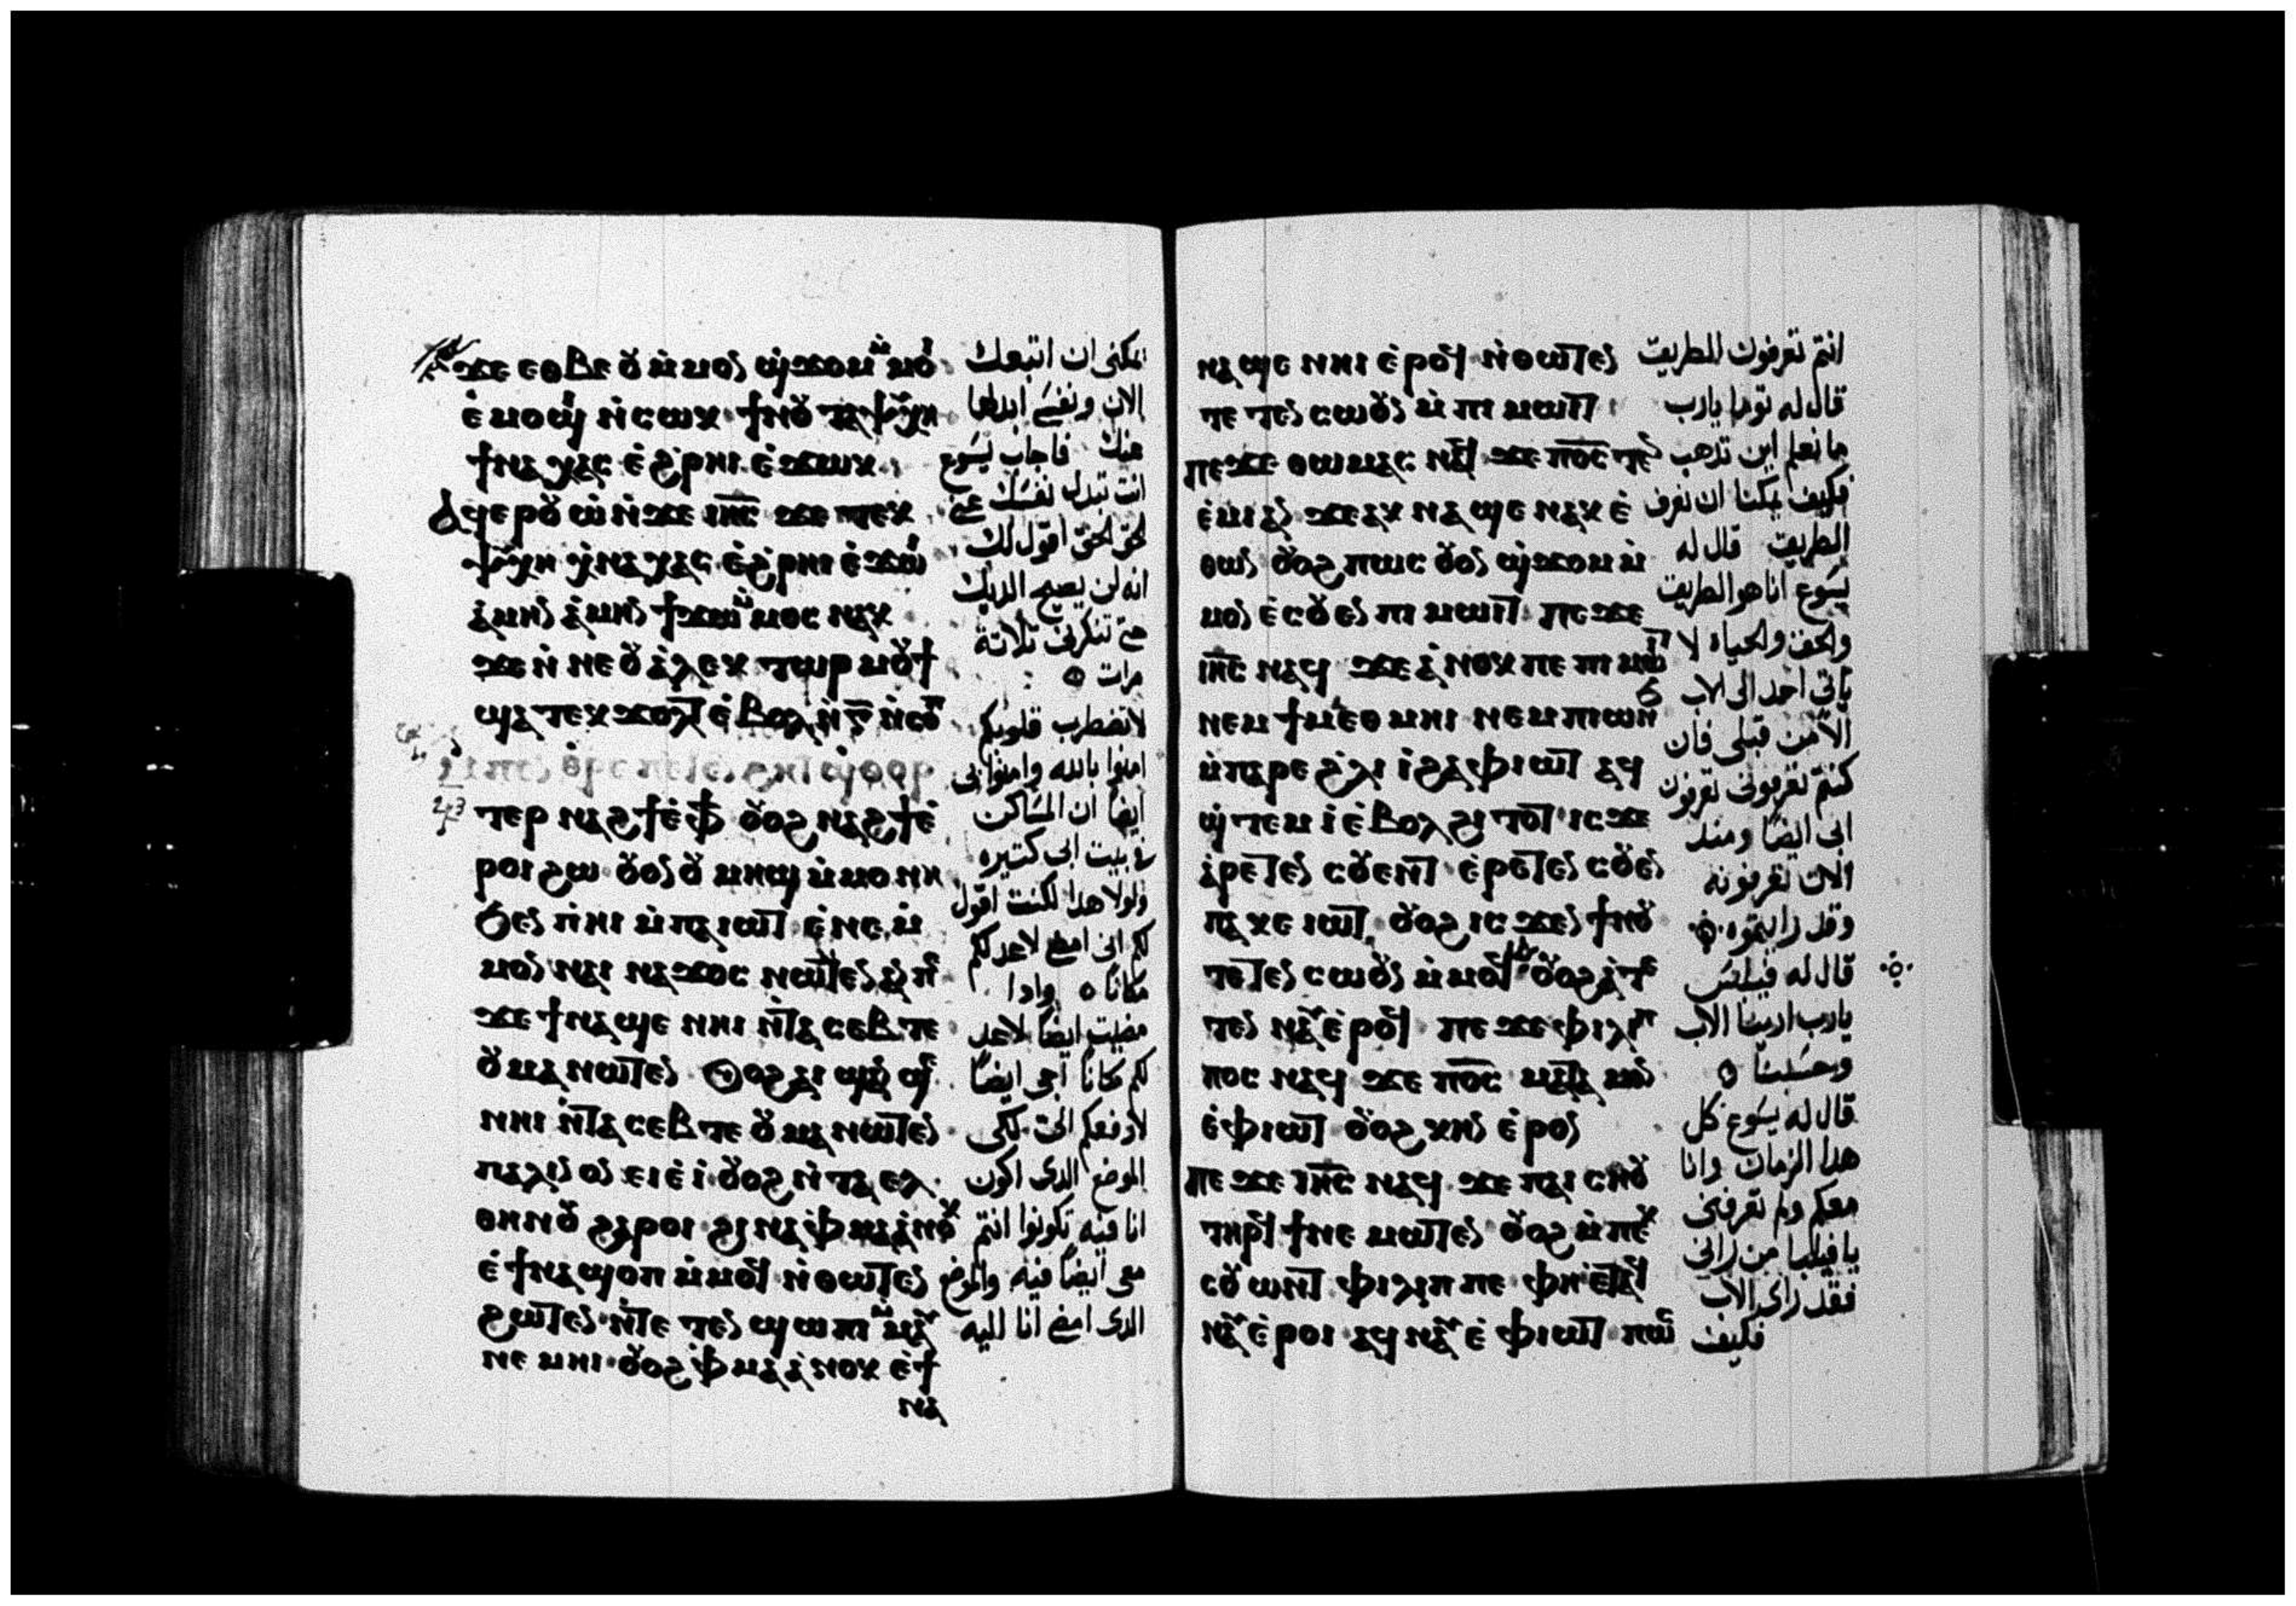 ϫⲉ ⲉⲑⲃⲉ ⲟⲩ ⲙ̀ⲙⲟⲛ ϣ̀ϫⲟⲙ ⲙ̀ⲙⲟⲓ
ⲉ̀ⲙⲟϣⲓ ⲛ̀ⲥⲱⲕ ϯⲛⲟⲩ ⲧⲁⲯⲩⲭⲏ
ϯⲛⲁⲭⲁⲥ ⲉ̀ϩ̀ⲣⲏⲓ ⲉ̀ϫⲱⲕ
ⲁϥⲉⲣⲟⲩⲱ̀ ⲛ̀ϫⲉ ⲓⲏ̅ⲥ̅ ϫⲉ ⲧⲉⲕ
ⲯⲩⲭⲏ ⲭ̀ⲛⲁⲭⲁⲥ ⲉ̀ϩ̀ⲣⲏⲓ ⲉ̀ϫⲱⲓ
ⲁ̀ⲙⲏⲛ ⲁ̀ⲙⲏⲛ ϯϫⲱ ⲙ̀ⲙⲟⲥ ⲛⲁⲕ
ϫⲉ ⲛ̀ⲛⲉ ⲟⲩⲁ̀ⲗⲉⲕⲧⲱⲣ ⲙⲟⲩϯ
ϣⲁⲧⲉⲕϫⲟⲗⲧ ⲉ̀ⲃⲟⲗ ⲛ̀ⲅ̅ ⲛ̀ⲥⲟⲡ
ϣ̀ⲑⲟⲣ
ⲧⲉⲣ ⲛⲁϩϯ ⲉ̀ⲫϯ ⲟⲩⲟϩ ⲛⲁϩϯ ⲉ̀
ⲣⲟⲓ ϩⲱ ⲟⲩⲟⲛ ⲟⲩⲙⲏϣ ⲙ̀ⲙⲟⲛⲏ
ϧⲉⲛ ⲡⲏⲓ ⲙ̀ⲡⲁⲓⲱⲧ ⲉ̀ⲛⲉ ⲙ̀
ⲙⲟⲛ ⲛⲁⲓ ⲛⲁϫⲟⲥ ⲛⲱⲧⲉⲛ ⲁⲛ ⲡⲉ
ϫⲉ ϯⲛⲁϣⲉ ⲛⲏⲓ ⲛ̀ⲧⲁⲥⲉⲃⲧⲉ
ⲟⲩⲙⲁ ⲛⲱⲧⲉⲛ ⲟⲩⲟϩ ⲁⲓϣⲁⲛϣⲉ
ⲛⲏⲓ ⲛ̀ⲧⲁⲥⲉⲃⲧⲉ ⲟⲩⲙⲁ ⲛⲱⲧⲉⲛ
ⲡⲁⲗⲓⲛ ⲟⲛ ⲉⲓⲉ̀ⲓ̀ ⲟⲩⲟϩ ⲛ̀ⲧⲁⲉⲗ
ⲑⲏⲛⲟⲩ ϩⲁⲣⲟⲓ ϩⲓⲛⲁ ⲫ̀ⲙⲁ ⲁ̀ⲛⲟⲕ
ⲉ̀ϯⲛⲁϣⲟⲡ ⲙ̀ⲙⲟϥ ⲛ̀ⲑⲱⲧⲉⲛ
ϩⲱⲧⲉⲛ ⲛ̀ⲧⲉⲧⲉⲛϣⲱⲡⲓ ⲙ̀ⲙⲁⲩ
ⲛⲉⲙⲏⲓ ⲟⲩⲟϩ ⲫ̀ⲙⲁ ⲁ̀ⲛⲟⲕ ⲉ̀ϯ
ⲛⲁ
يمكنى ان اتبعك
الان ونفسى ابدلها
عنك فاجاب يسوع
انت تبدل نفسك عنى
الحق الحق اقول لك
انه لن يصيح الديك
حتى تنكرنى تلاتة
مرات
لا تضطرب قلوبكم
امنوا بالله وامنوا بى
ايضا ان المساكن
فى بيت ابى كتيره
ولولا هدا لكنت اقول
لكم انى امضى لاعد لكم
مكانا وادا
مضيت ايضا لاعد
لكم مكانا اجى ايضا
لارفعكم الى لكى
الموضع الدى اكون
انا فيه تكونوا انتم
معى ايضا فيه والموضع
الدى امضى انا اليه
ⲛⲁϣⲉ ⲛⲏⲓ ⲉ̀ⲣⲟϥ ⲛ̀ⲑⲱⲧⲉⲛ
ⲧⲉⲧⲉⲛⲥⲱⲟⲩⲛ ⲙ̀ⲡⲓⲙⲱⲓⲧ
ⲡⲉϫⲉ ⲑⲱⲙⲁⲥ ⲛⲁϥ ϫⲉ ⲡⲟ̅ⲥ̅ ⲧⲉⲛ
ⲉ̀ⲙⲓ ⲁⲛ ϫⲉ ⲁⲕⲛⲁϣⲉ ⲛⲁⲕ ⲉ̀
ⲑⲱⲛ ⲟⲩⲟϩ ⲡⲱⲥ ⲟⲩⲟⲛ ϣ̀ϫⲟⲙ ⲙ̀
ⲙⲟⲛ ⲉ̀ⲥⲟⲩⲉⲛ ⲡⲓⲙⲱⲓⲧ ⲡⲉϫⲉ
ⲓⲏ̅ⲥ̅ ⲛⲁϥ ϫⲉ ⲁ̀ⲛⲟⲕ ⲡⲉ ⲡⲓⲙⲱⲓⲧ
ⲛⲉⲙ ϯⲙⲉⲑⲙⲏⲓ ⲛⲉⲙ ⲡⲓⲱⲛϧ
ⲙ̀ⲡⲁⲣⲉ ϩ̀ⲗⲓ ⲓ̀ ϩⲁ ⲫ̀ⲓⲱⲧ ⲁϥ
ϣ̀ⲧⲉⲙⲓ̀ ⲉ̀ⲃⲟⲗ ϩⲓⲧⲟⲧ ⲓⲥϫⲉ
ⲁ̀ⲣⲉⲧⲉⲛⲥⲟⲩⲉⲛⲧ ⲉ̀ⲣⲉⲧⲉⲛⲥⲟⲩⲉⲛ
ⲡⲁⲕⲉⲓⲱⲧ ⲟⲩⲟϩ ⲓⲥϫⲉⲛ ϯⲛⲟⲩ
ⲧⲉⲧⲉⲛⲥⲱⲟⲩⲛ ⲙ̀ⲙⲟϥ ⲟⲩⲟϩ ⲁ̀ⲣⲉ
ⲧⲉⲛⲛⲁⲩ ⲉ̀ⲣⲟϥ ⲡⲉϫⲉ ⲫⲓⲗⲓⲡ
ⲡⲟⲥ ⲛⲁϥ ϫⲉ ⲡⲟ̅ⲥ̅ ⲙⲁⲧⲁⲙⲟⲛ
ⲉ̀ⲫ̀ⲓⲱⲧ ⲟⲩⲟϩ ⲕⲏⲛ ⲉ̀ⲣⲟⲛ
ⲡⲉϫⲉ ⲓⲏ̅ⲥ̅ ⲛⲁϥ ϫⲉ ⲡⲁⲓⲥⲏⲟⲩ
ⲧⲏⲣϥ ϯⲛⲉⲙⲱⲧⲉⲛ ⲟⲩⲟϩ ⲙ̀ⲡⲉⲕ
ⲥⲟⲩⲱⲛⲧ ⲫⲓⲗⲓⲡⲡⲉ ⲫⲏⲉ̀ⲧⲁϥ
ⲛⲁⲩ ⲉ̀ⲣⲟⲓ ⲁϥⲛⲁⲩ ⲉ̀ⲫ̀ⲓⲱⲧ ⲡⲱⲥ
انتم تعرفون الطريق
قال له توما يارب
ما نعلم اين تدهب
فكيف يمكنا ان نعرف
الطريق قال له
يسوع انا هو الطريق
والحق والحياه لا
ياتى احد الى الاب
الا من قبلى فان
كنتم تعرفونى تعرفون
ابى ايضا ومند
الان تعرفونه
وقد رايتموه
قال له فيلبس
يارب ارينا الاب
وحسبنا
قال له يسوع كل
هدا الزمان وانا
معكم ولم تعرفنى
يا فيلبا من رانى
فقد راى الاب
فكيف